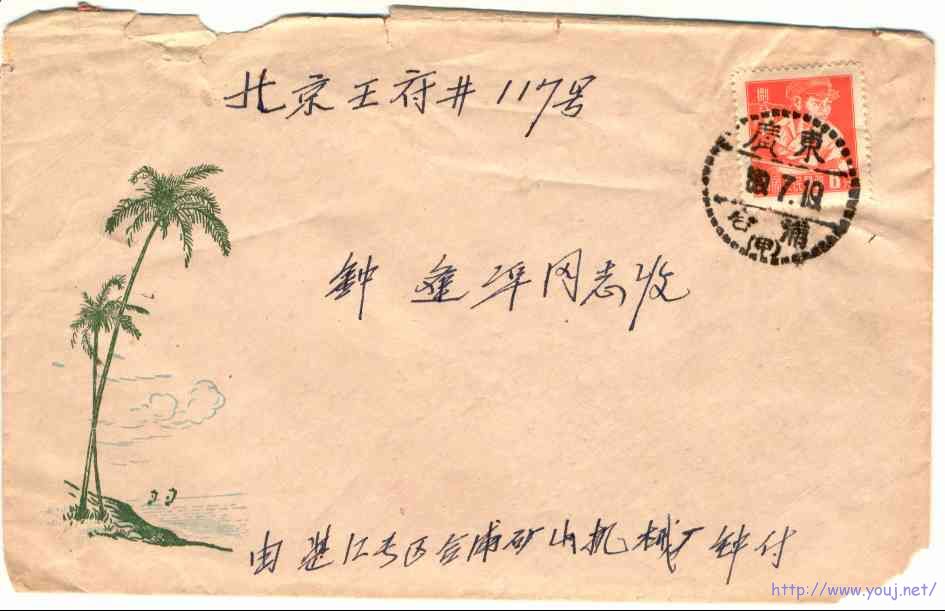 北京王府井117号
鈡建平同志收
由湛江专区合浦矿山机械厂钟付
廣東
7.19
合浦
(甲)
8
http://www.youj.net/